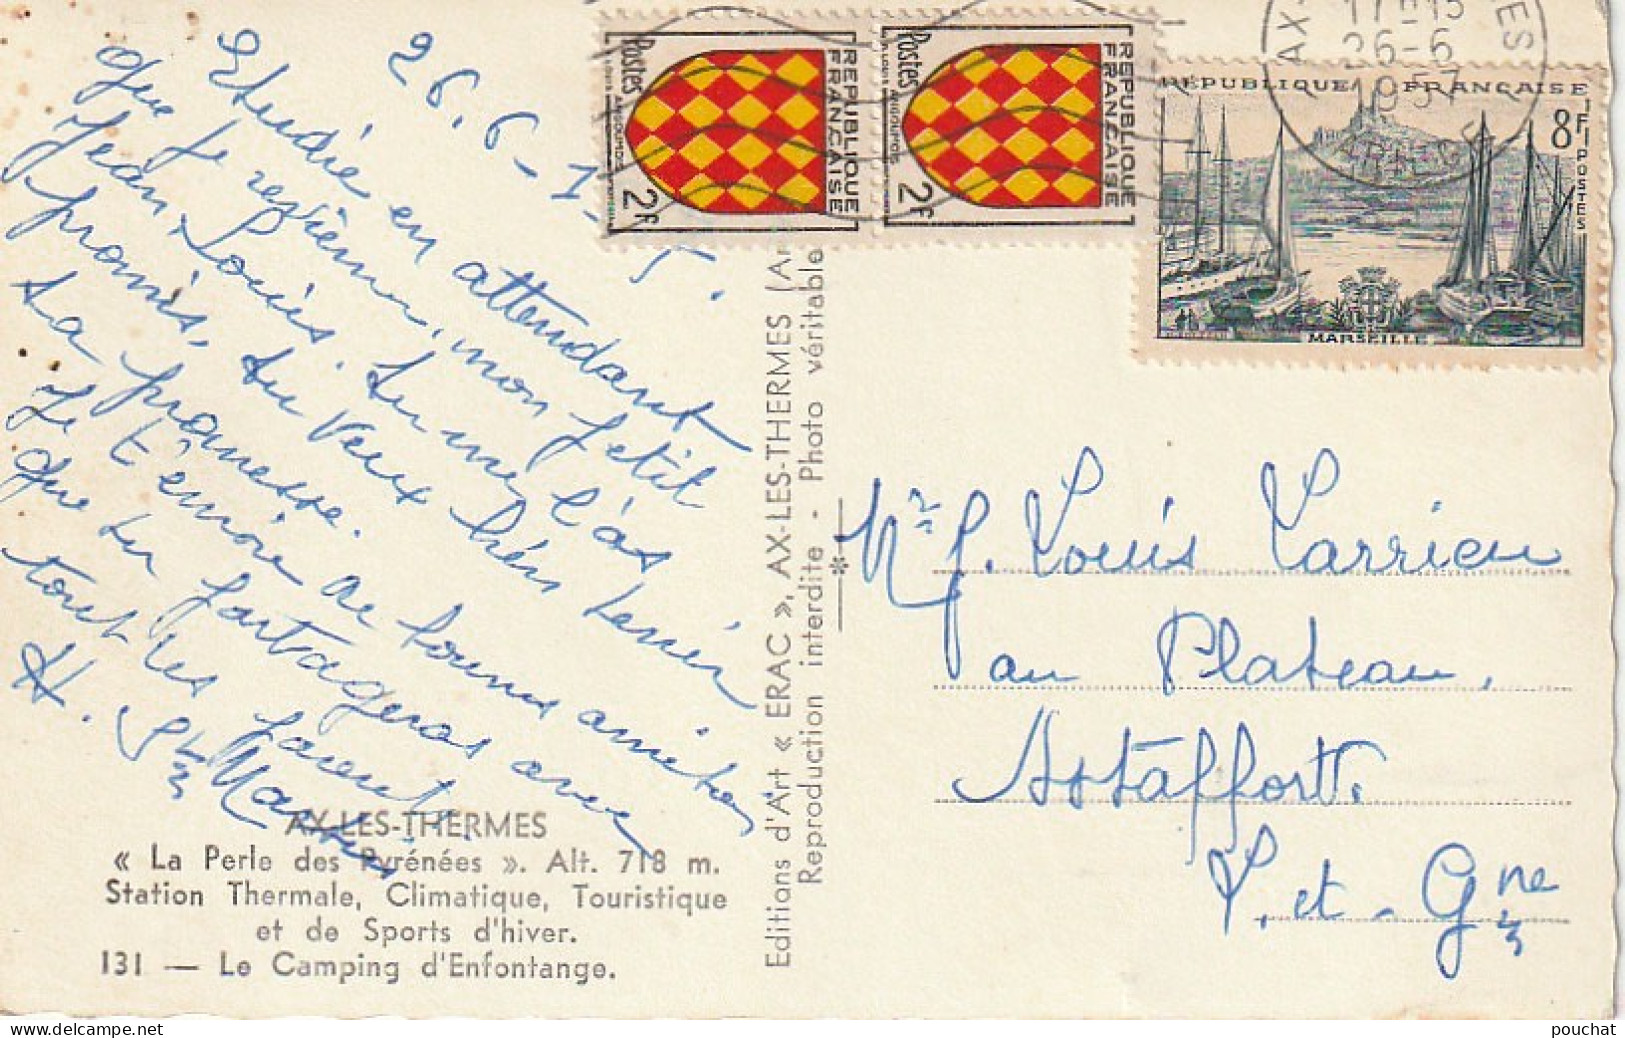 26.6-1-5.
Etudie en attendant
que je revienne, mon petit
Jean Louis. Tu me l'as
promis, tu veux bien tenir
ta promesse.
Je t'envoie de bonnes amitiés
que tu partageras avec
tout les parents.
H.
AX-LES-THERMES
« La Perle des Pyrénées ». Alt. 718 m.
Station Thermale, Climatique, Touristique
et de Sports d'hiver.
131 — Le Camping d'Enfontange.
Editions d'Art « ERAC », AX-LES-THERMES
Reproduction interdite - Photo véritable
REPUBLIQUE
FRANÇAISE
Postes
ANGOUMOIS
2F
REPUBLIQUE
FRANÇAISE
Postes
ANGOUMOIS
2F
AX-
17H15
26-6
1957
ARIEGE
RÉPUBLIQUE FRANÇAISE
8F
POSTES
MARSEILLE
Mr J. Louis Larrieu
au Plateau,
Astaffort.
L. et-Gne
pouchat
www.delcampe.net